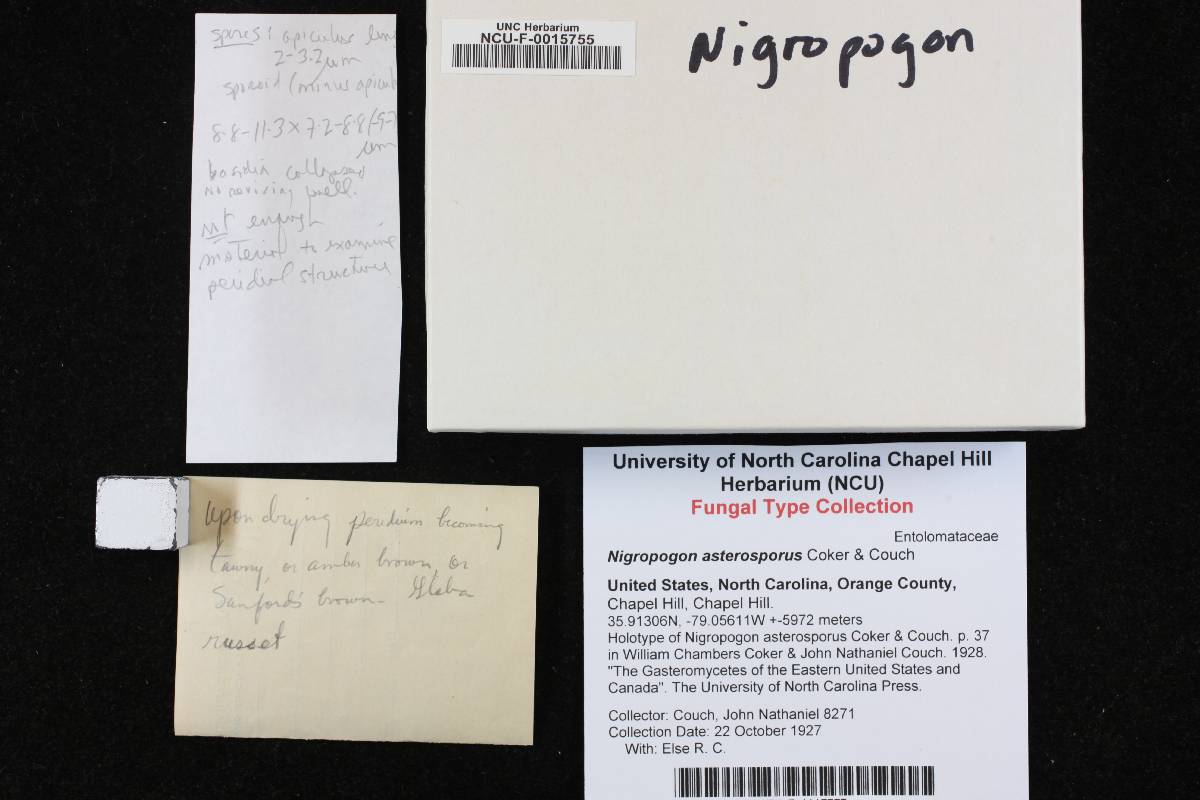 spores: apiculus
2-3.2µm
sporoid (minus apicul
8.8-11.3 x 7.2-8.8 (-9.7
µm
basidia collapsed
no reviving well.
not enough
material to examine
peridial structures
UNC Herbarium
NCU-F-0015755
Nigropogon
Upon drying peridium becoming
tawny, or amber brown, or
Sanford's brown- Gleba
russet
University of North Carolina Chapel Hill
Herbarium (NCU)
Fungal Type Collection
Entolomataceae
Nigropogon asterosporus Coker & Couch
United States, North Carolina, Orange County,
Chapel Hill, Chapel Hill.
35.91306N, -79.05611W +-5972 meters
Holotype of Nigropogon asterosporus Coker & Couch. p. 37
in William Chambers Coker & John Nathaniel Couch. 1928.
"The Gasteromycetes of the Eastern United States and
Canada". The University of North Carolina Press.
Collector: Couch, John Nathaniel 8271
Collection Date: 22 October 1927
With: Else R. C.